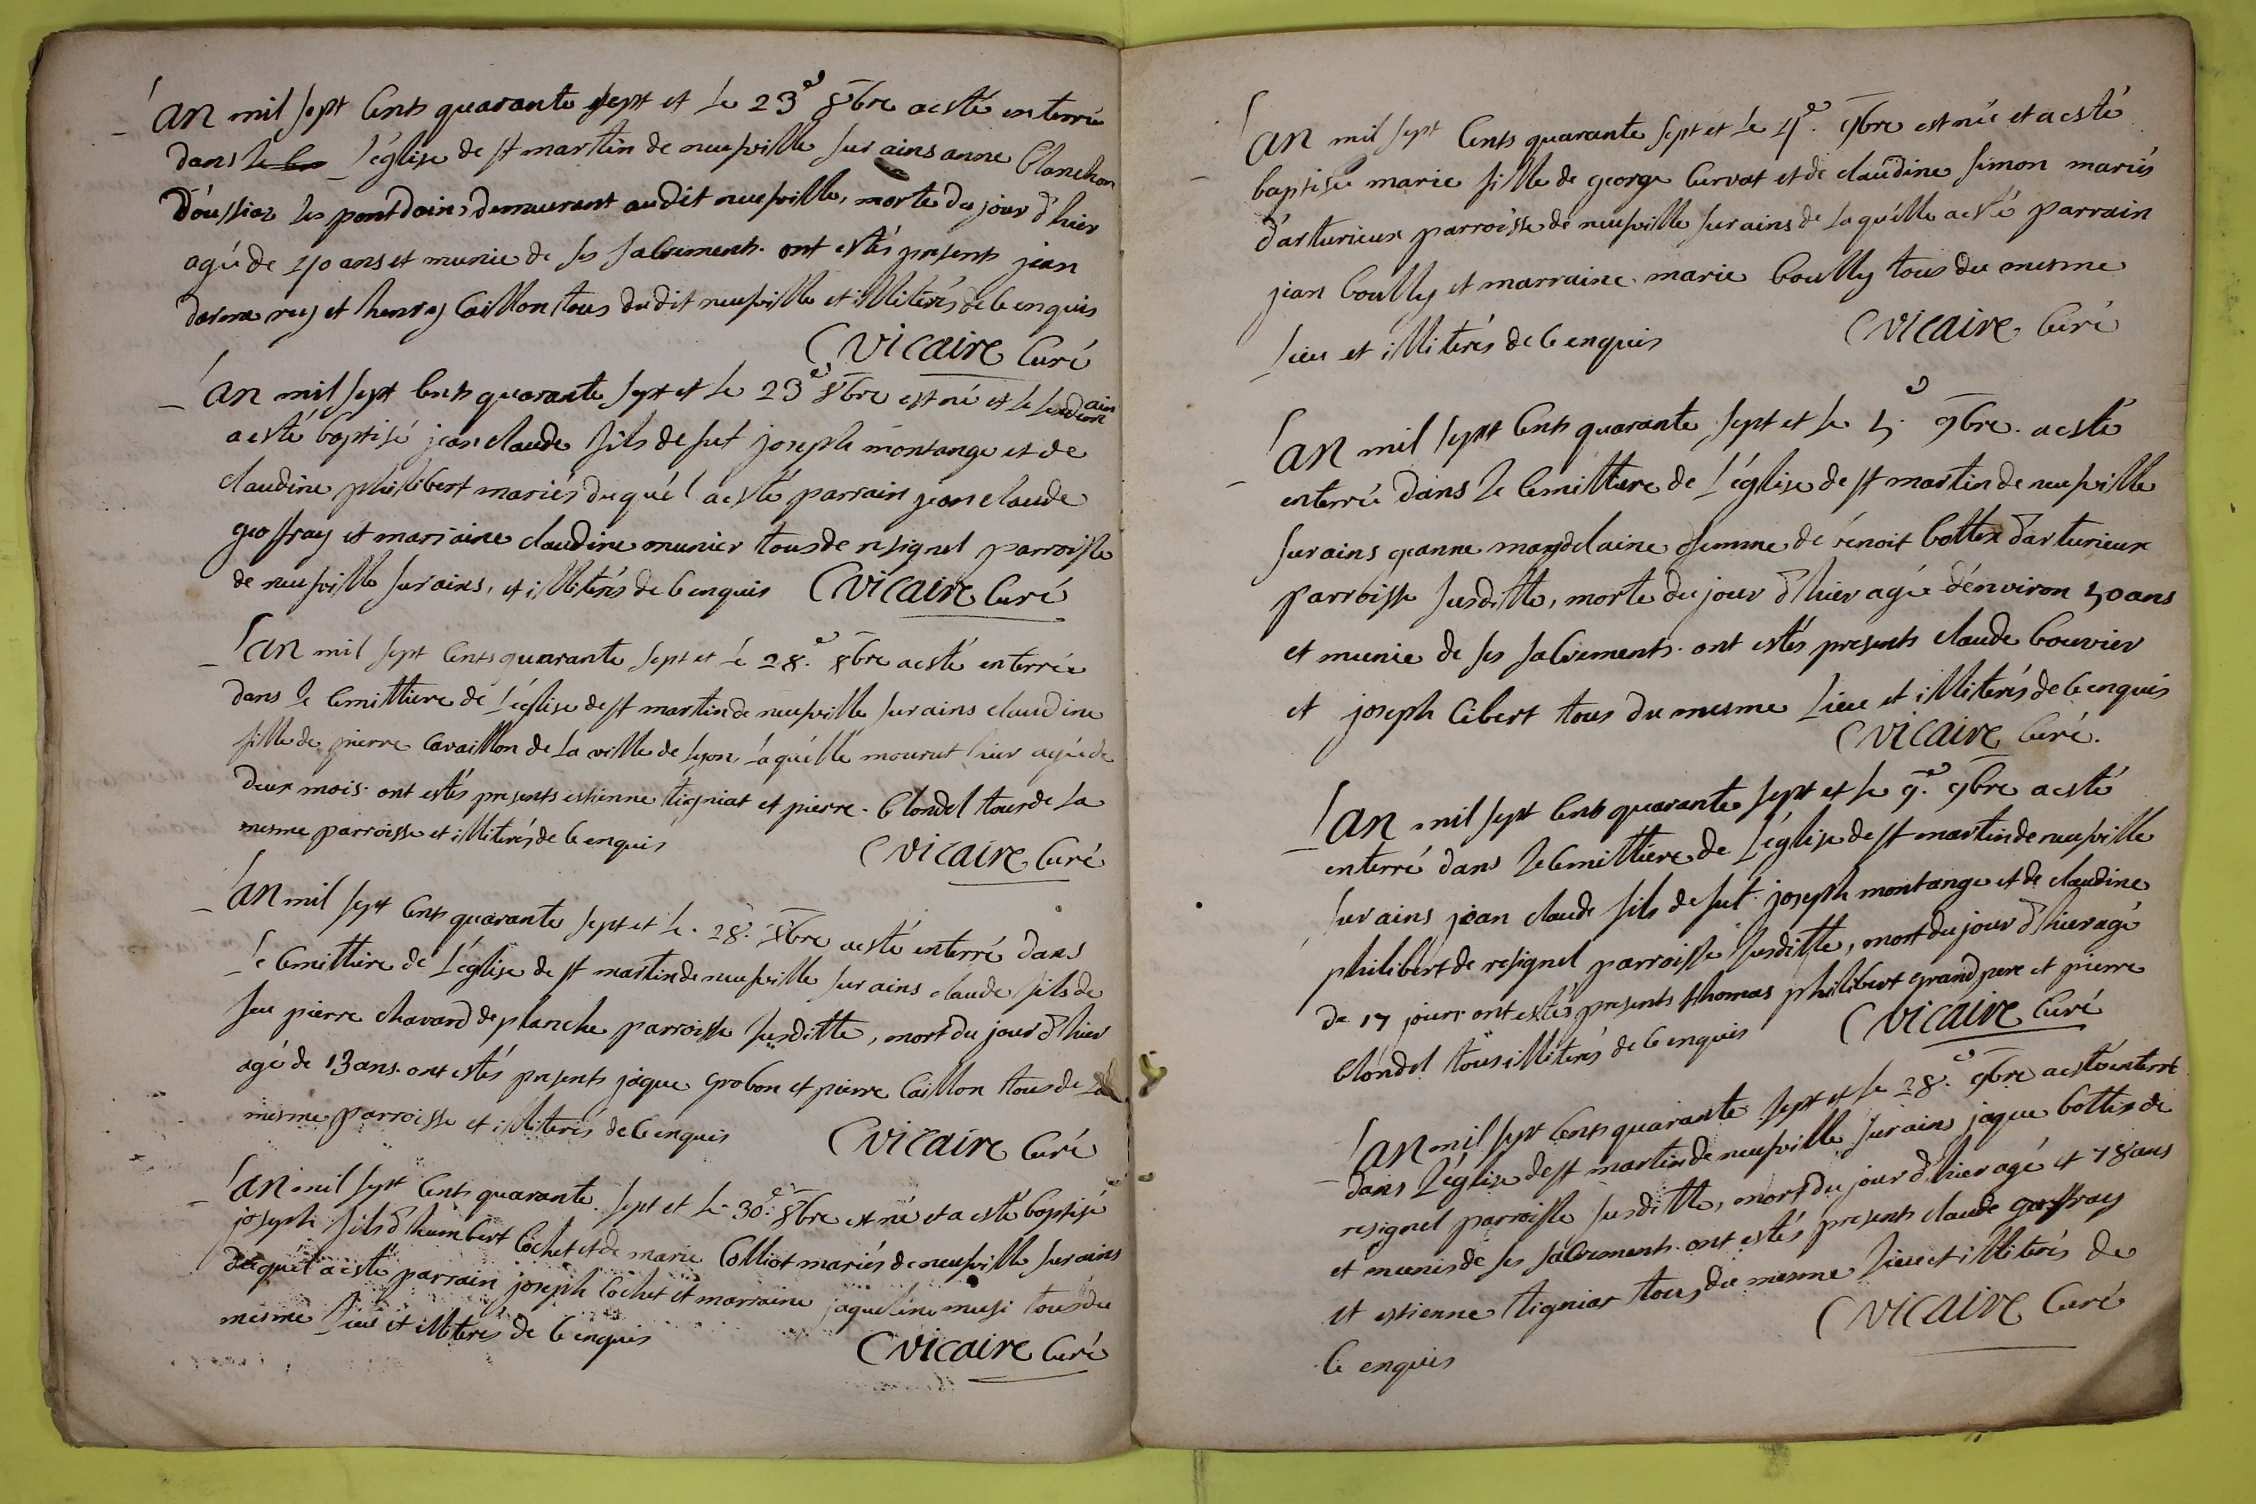 Lan mil sept cents quarante sept et le 23e 8bre a esté enterré
dans le l'église de st martin de neufville sur ains anne blanchon
d'oussiaz les pont dain, demeurant audit neufville, morte du jour d'hier
agée de 40 ans et munie de ses sacrements. ont estés presents jean
et henry caillon tous dudit neufville et illiterés de ce enquis
C vicaire curé
Lan mil sept cents quarante sept et le 23e 8bre est né et le lendemain
a esté baptisé jean claude fils de fut joseph montange et de
claudine philibert mariés duquél a esté parrain jean claude
geoffray et marraine claudine munier tous de resignel parroisse
de neufville sur ains, et illiterés de ce enquis C vicaire curé
Lan mil sept cents quarante sept et le 28e. 8bre a esté enterrée
dans le cemittiere de l'église de st martin de neufville sur ains claudine
fille de pierre cavaillon de la ville de lyon, laquélle mourut hier agée de
deux mois. ont estés presents estienne tigniat et pierre. blondel tous de la
mesme parroisse et illiterés de ce enquis
C vicaire curé
Lan mil sept cents quarante sept et le. 28. 8bre a esté enterré dans
le cemittiere de l'église de st martin de neufville sur ains claude fils de
feu pierre chavard de planche parroisse susditte, mort du jour d'hier
agé de 13 ans. ont estés presents jaque grobon et pierre caillon tous de la
mesme parroisse et illiterés de ce enquis
C vicaire curé
Lan mil sept cents quarante. sept et le 30e. 8bre est né et a esté baptisé
joseph fils d'humbert cochet et de marie colliot mariés de neufville sur ains
duquél a esté parrain joseph cochet et marraine jaqueline musi tous du
mesme lieu et illiterés de ce enquis
C vicaire curé
Lan mil sept cents quarante sept et le 4e. 9bre est née et a esté
baptisée marie fille de george curvat et de claudine simon mariés
d'arturieux parroisse de neufville sur ains de laquélle a esté parrain
jean boully et marraine. marie boully tous du mesme
lieu et illiterés de ce enquis
C vicaire. curé
Lan mil sept cents quarante sept et le 5e. 9bre. a esté
enterrée dans le cemittiere de l'église de st martin de neufville
sur ains jeanne magdelaine femme de benoit bottex d'arturieux
parroisse susditte, morte du jour d'hier agée d'environ 50 ans
et munie de ses sacrements. ont estés presents claude bouvier
et joseph cibert tous du mesme lieu et illiterés de ce enquis
C vicaire curé.
Lan mil sept cents quarante sept et le 9e. 9bre a esté
enterré dans le cemittiere de l'église de st martin de neufville
sur ains jean claude fils de fut. joseph montange et de claudine
philibert de resignel parroisse susditte, mort du jour d'hier agé
de 17 jours ont estés presents thomas philibert grand pere et pierre
blondel tous illiterés de ce enquis
C vicaire curé
Lan mil sept cents quarante sept et le 28e. 9bre a esté enterré
dans l'église de st martin de neufville sur ains jaque bottex de
resignel parroisse susditte, mort du jour d'hier agé et 78 ans
et munis de ses sacrements. ont estés presents claude geoffray
et estienne tigniat tous du mesme lieu et illiterés de
ce enquis
C vicaire curé